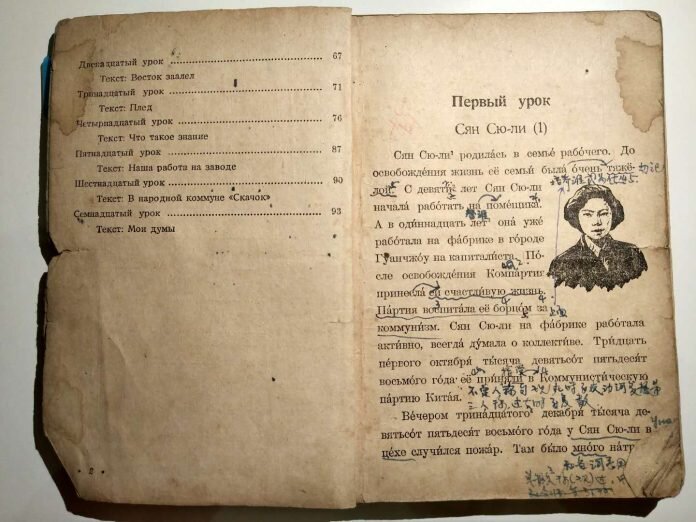 Двенадцатый урок 67
Текст: Восток заалел
Тринадцатый урок 71
Текст: Плед
Четырнадцатый урок 76
Текст: Что такое знание
Пятнадцатый урок 87
Текст: Наша работа на заводе
Шестнадцатый урок 90
Текст: В народной коммуне «Скачок»
Семнадцатый урок 93
Текст: Мои думы
2
Первый урок
Сян Сю-ли (1)
Сян Сю-ли¹ родила́сь в семье́ рабо́чего. До
освобожде́ния жизнь её семьи́ была́ о́чень тяжё-
лой. С девяти́ лет Сян Сю-ли
начала́ рабо́тать на поме́щика.
А в оди́ннадцать лет она́ уже́
рабо́тала на фа́брике в го́роде
Гуанчжо́у на капитали́ста. По́-
сле освобожде́ния Компа́ртия
принесла́ ей счастли́вую жизнь.
Па́ртия воспита́ла её борцо́м за
коммуни́зм. Сян Сю-ли на фа́брике рабо́тала
акти́вно, всегда́ ду́мала о коллекти́ве. Три́дцать
пе́рвого октября́ ты́сяча девятьсо́т пятьдеся́т
восьмо́го го́да её при́няли в Коммунисти́ческую
па́ртию Кита́я.
Ве́чером трина́дцатого декабря́ ты́сяча де-
вятьсо́т пятьдеся́т восьмо́го го́да у Сян Сю-ли в
це́хе случи́лся пожа́р. Там бы́ло мно́го на́тр